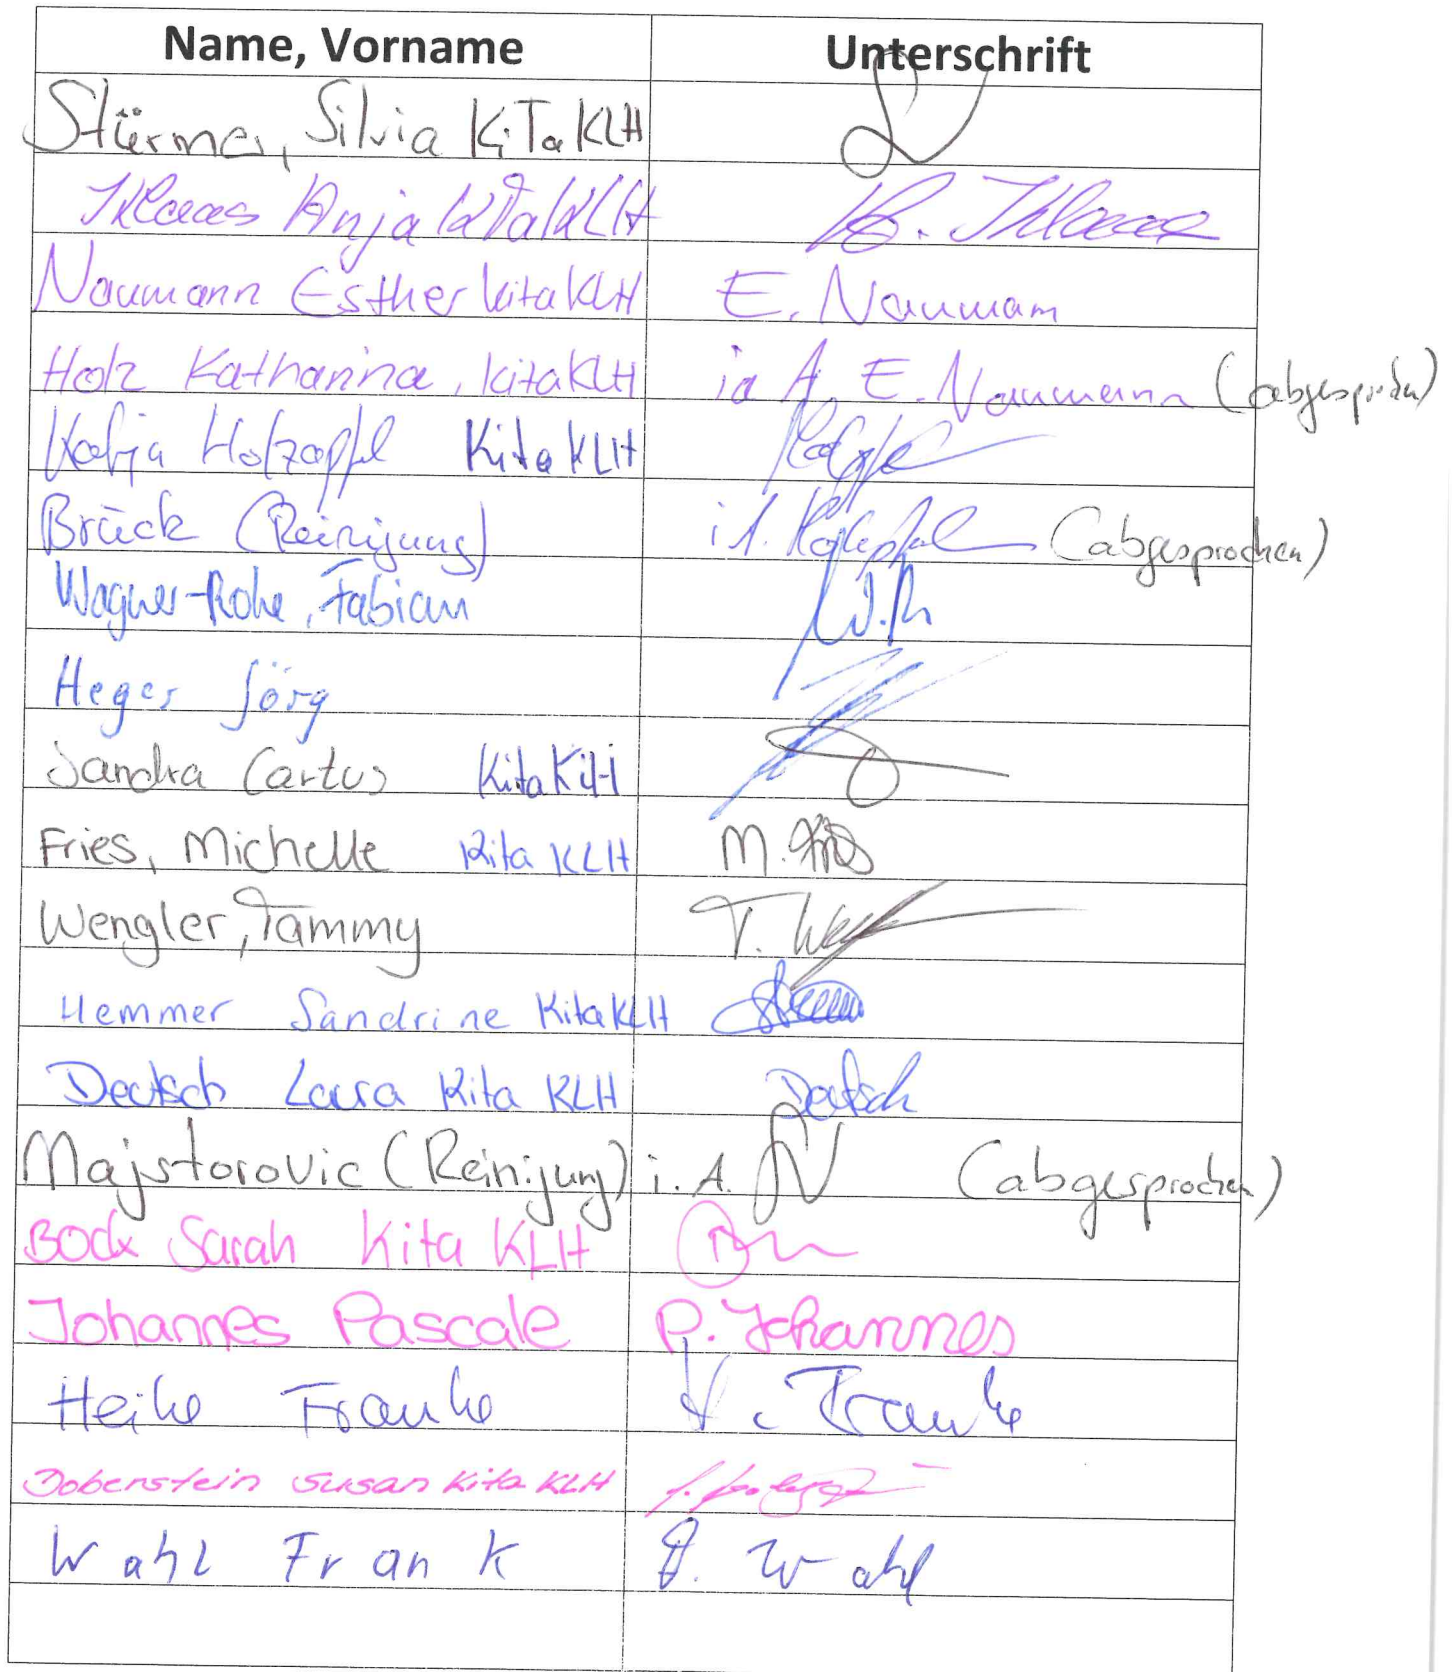 Name, Vorname Unterschrift
Stürmer, Silvia KiTa KLH
Klaas Anja KiTa KLH Klaas
Naumann Esther Kita KLH E. Naumann
Holz Katharina, Kita KLH i.A. E. Naumann (abgesprochen)
Katja Holzapfel Kita KLH
Brück (Reinigung) i.A. Holzapfel (abgesprochen)
Wagner-Rohe, Fabian W.R
Heger Jörg
Sandra Cartus Kita KLH
Fries, Michelle Kita KLH M. Fries
Wengler, Tammy T.
Hemmer Sandrine Kita KLH
Deutsch Laura Kita KLH Deutsch
Majstorovic (Reinigung) i. A. (abgesprochen)
Bock Sarah Kita KLH
Johannes Pascale P. Johannes
Heike Franke H. Franke
Dobenstein Susan Kita KLH
Wahl Frank F. Wahl